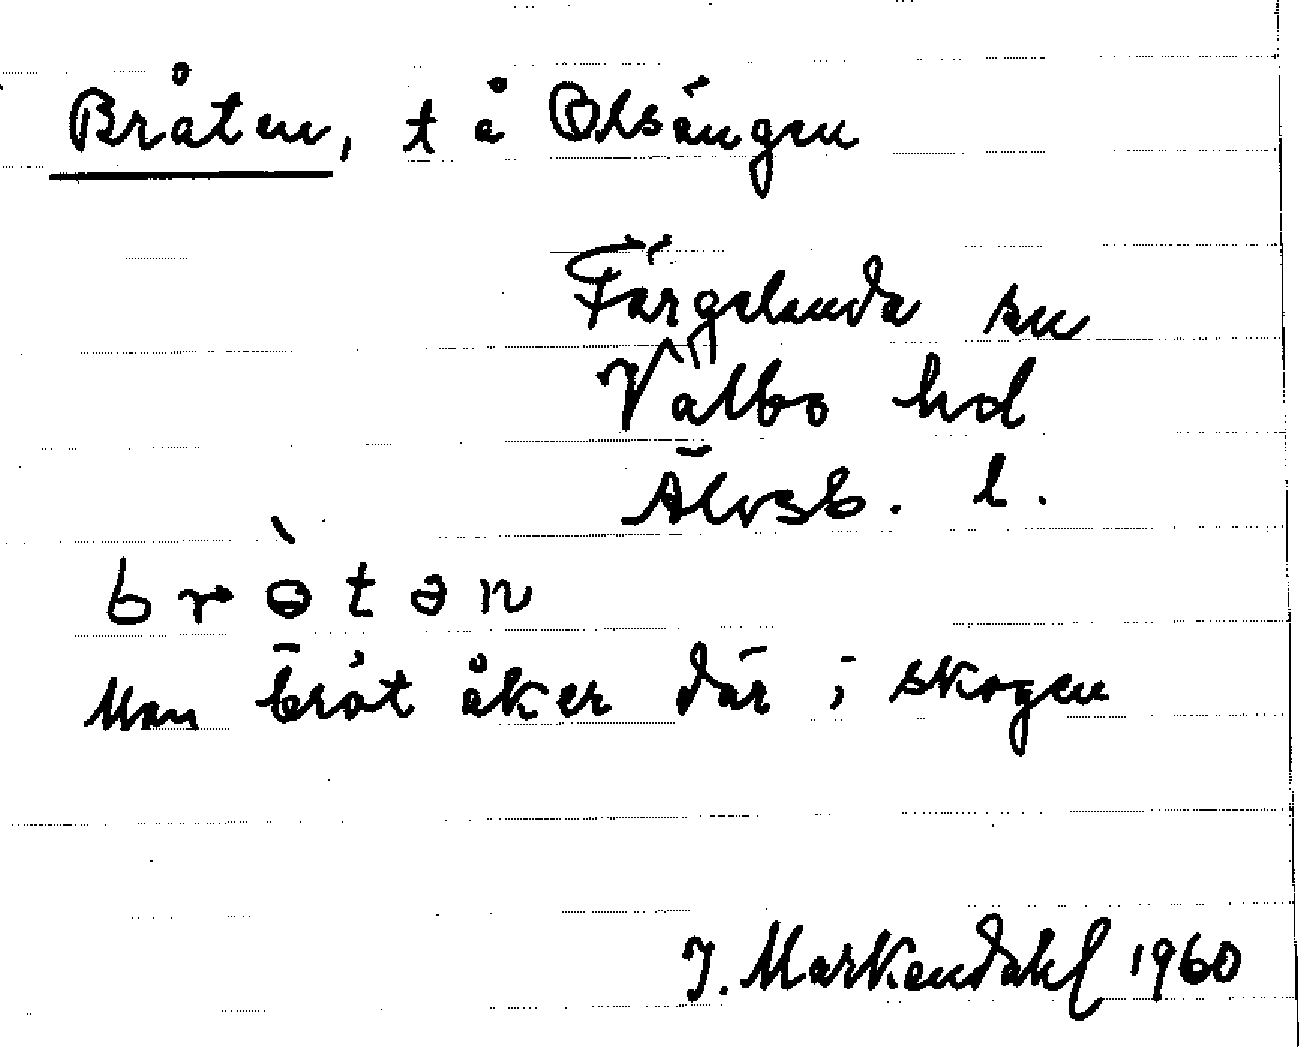 Bråten, t å Olsängen
Färgelanda sn
Valbo hd
Älvsb. l.
brɵ̀tən
Man bröt åker där i skogen
J. Markendahl 1960